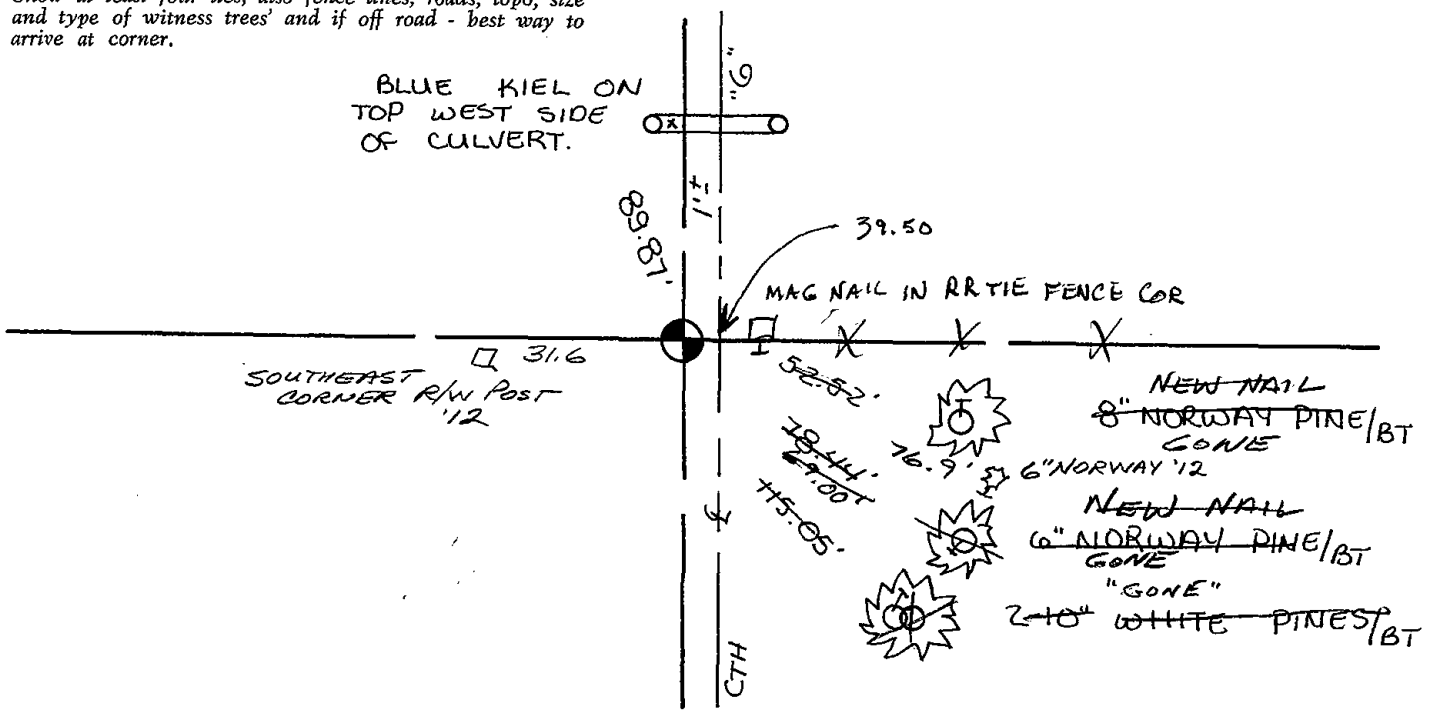 and type of witness trees' and if off road - best way to
arrive at corner.
BLUE KIEL ON
TOP WEST SIDE
OF CULVERT.
"G"
x
1'±
89.87'
39.50
MAG NAIL IN RR TIE FENCE COR
31.6
SOUTHEAST
CORNER R/W POST
'12
52.52'
NEW NAIL
8" NORWAY PINE/BT
GONE
78.44'
76.9'
6" NORWAY '12
69.00
115.05'
NEW NAIL
6" NORWAY PINE/BT
GONE
"GONE"
2-10" WHITE PINES/BT
CTH